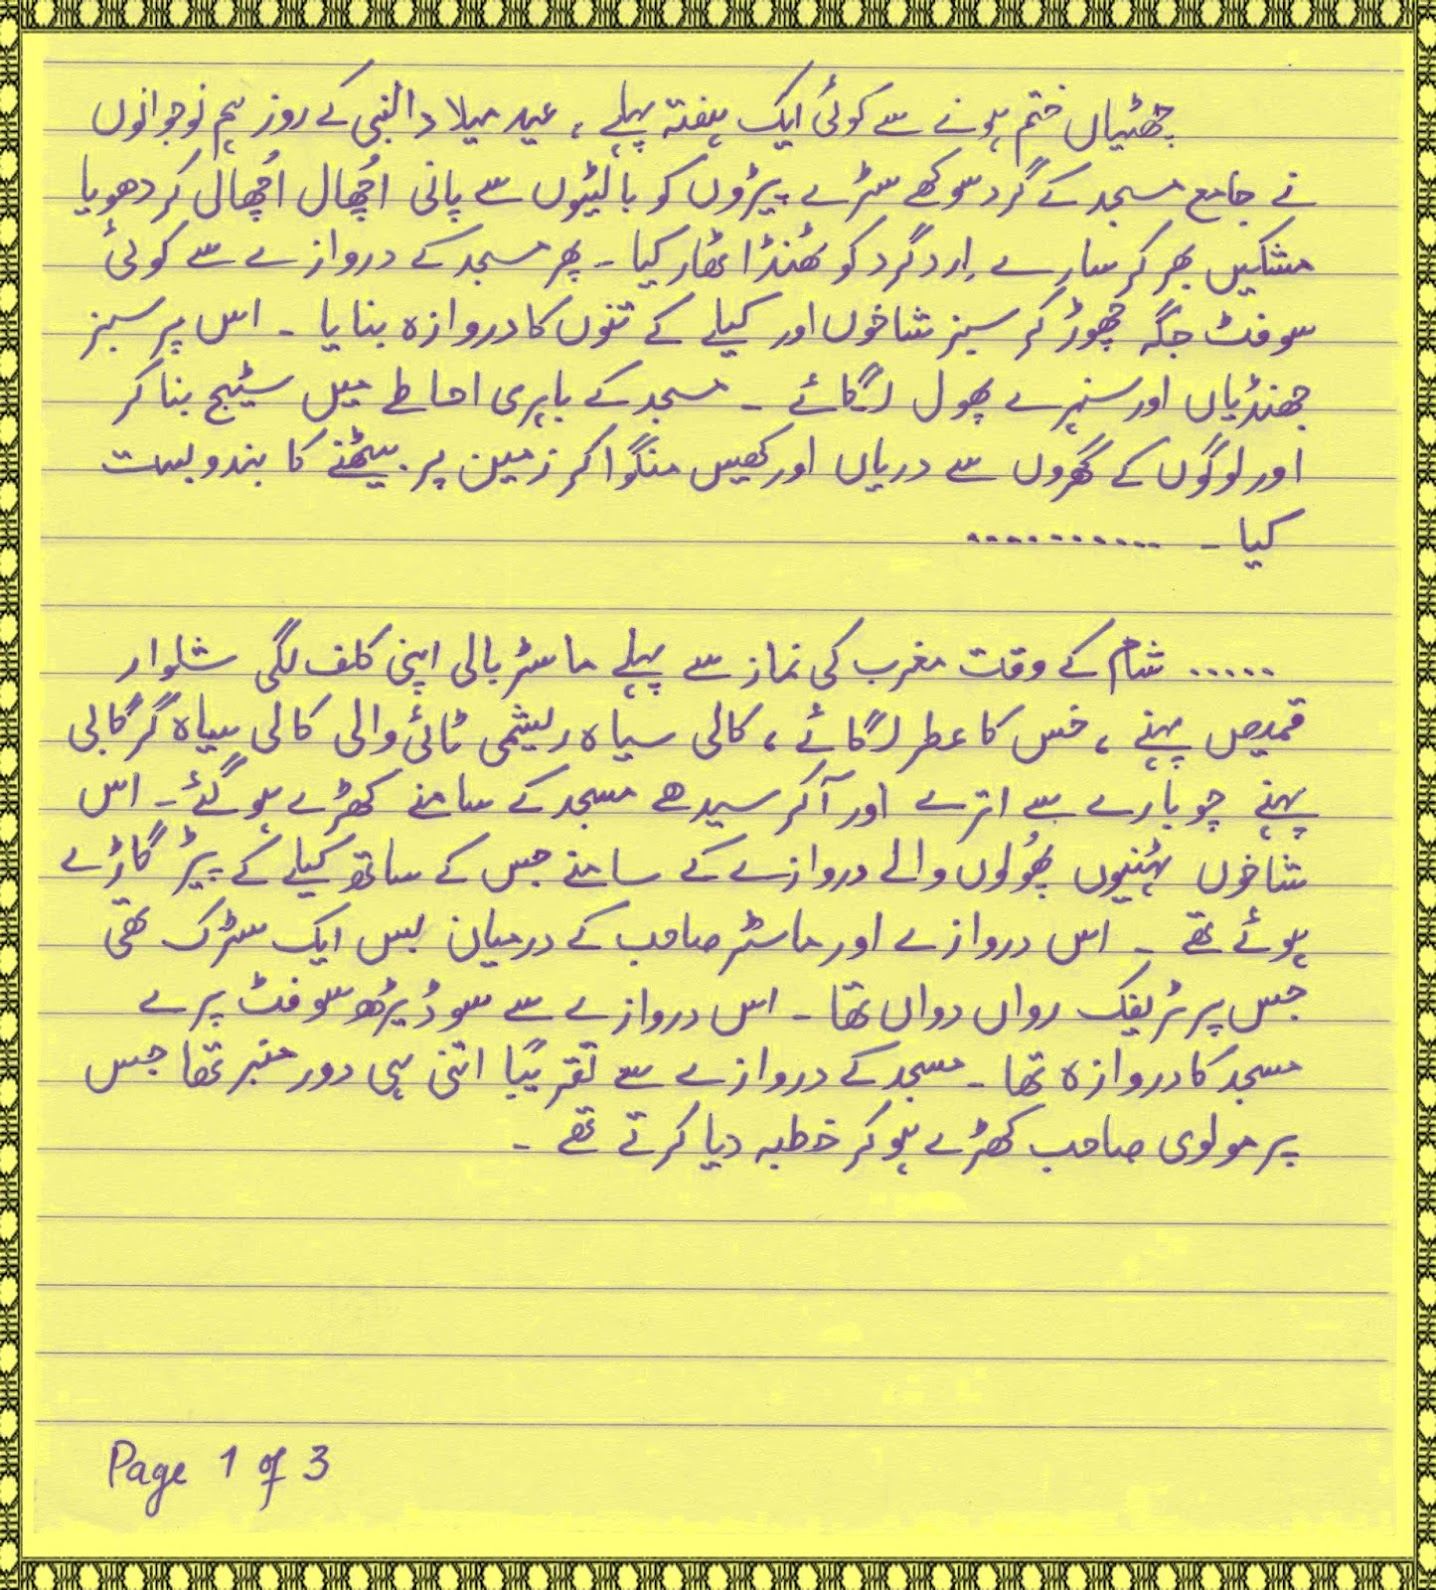 چھٹیاں ختم ہونے سے کوئی ایک ہفتہ پہلے ، عید میلاد النبی کے روز ہم نوجوانوں
نے جامع مسجد کے گرد سوکھے سڑے پیڑوں کو بالٹیوں سے پانی اُچھال اُچھال کر دھویا
مشکیں بھر کر سارے اِرد گرد کو ٹھنڈا ٹھار کیا ۔ پھر مسجد کے دروازے سے کوئی
سو فٹ جگہ چھوڑ کر سبز شاخوں اور کیلے کے تنوں کا دروازہ بنایا ۔ اس پر سبز
جھنڈیاں اور سنہرے پھول لگائے ۔ مسجد کے باہری احاطے میں سٹیج بنا کر
اور لوگوں کے گھروں سے دریاں اور کھیس منگوا کر زمین پر بیٹھنے کا بندوبست
کیا ۔ ..........
..... شام کے وقت مغرب کی نماز سے پہلے ماسٹر بالی اپنی کلف لگی شلوار
قمیص پہنے ، خس کا عطر لگائے ، کالی سیاہ ریشمی ٹائی والی کالی سیاہ گرگابی
پہنے چوبارے سے اترے اور آ کر سیدھے مسجد کے سامنے کھڑے ہو گئے ۔ اس
شاخوں ٹہنیوں پھُولوں والے دروازے کے سامنے جس کے ساتھ کیلے کے پیڑ گاڑے
ہوئے تھے ۔ اس دروازے اور ماسٹر صاحب کے درمیان بس ایک سڑک تھی
جس پر ٹریفک رواں دواں تھا ۔ اس دروازے سے سو ڈیڑھ سو فٹ پرے
مسجد کا دروازہ تھا ۔ مسجد کے دروازے سے تقریباً اتنی ہی دور منبر تھا جس
پر مولوی صاحب کھڑے ہو کر خطبہ دیا کرتے تھے ۔
Page 1 of 3